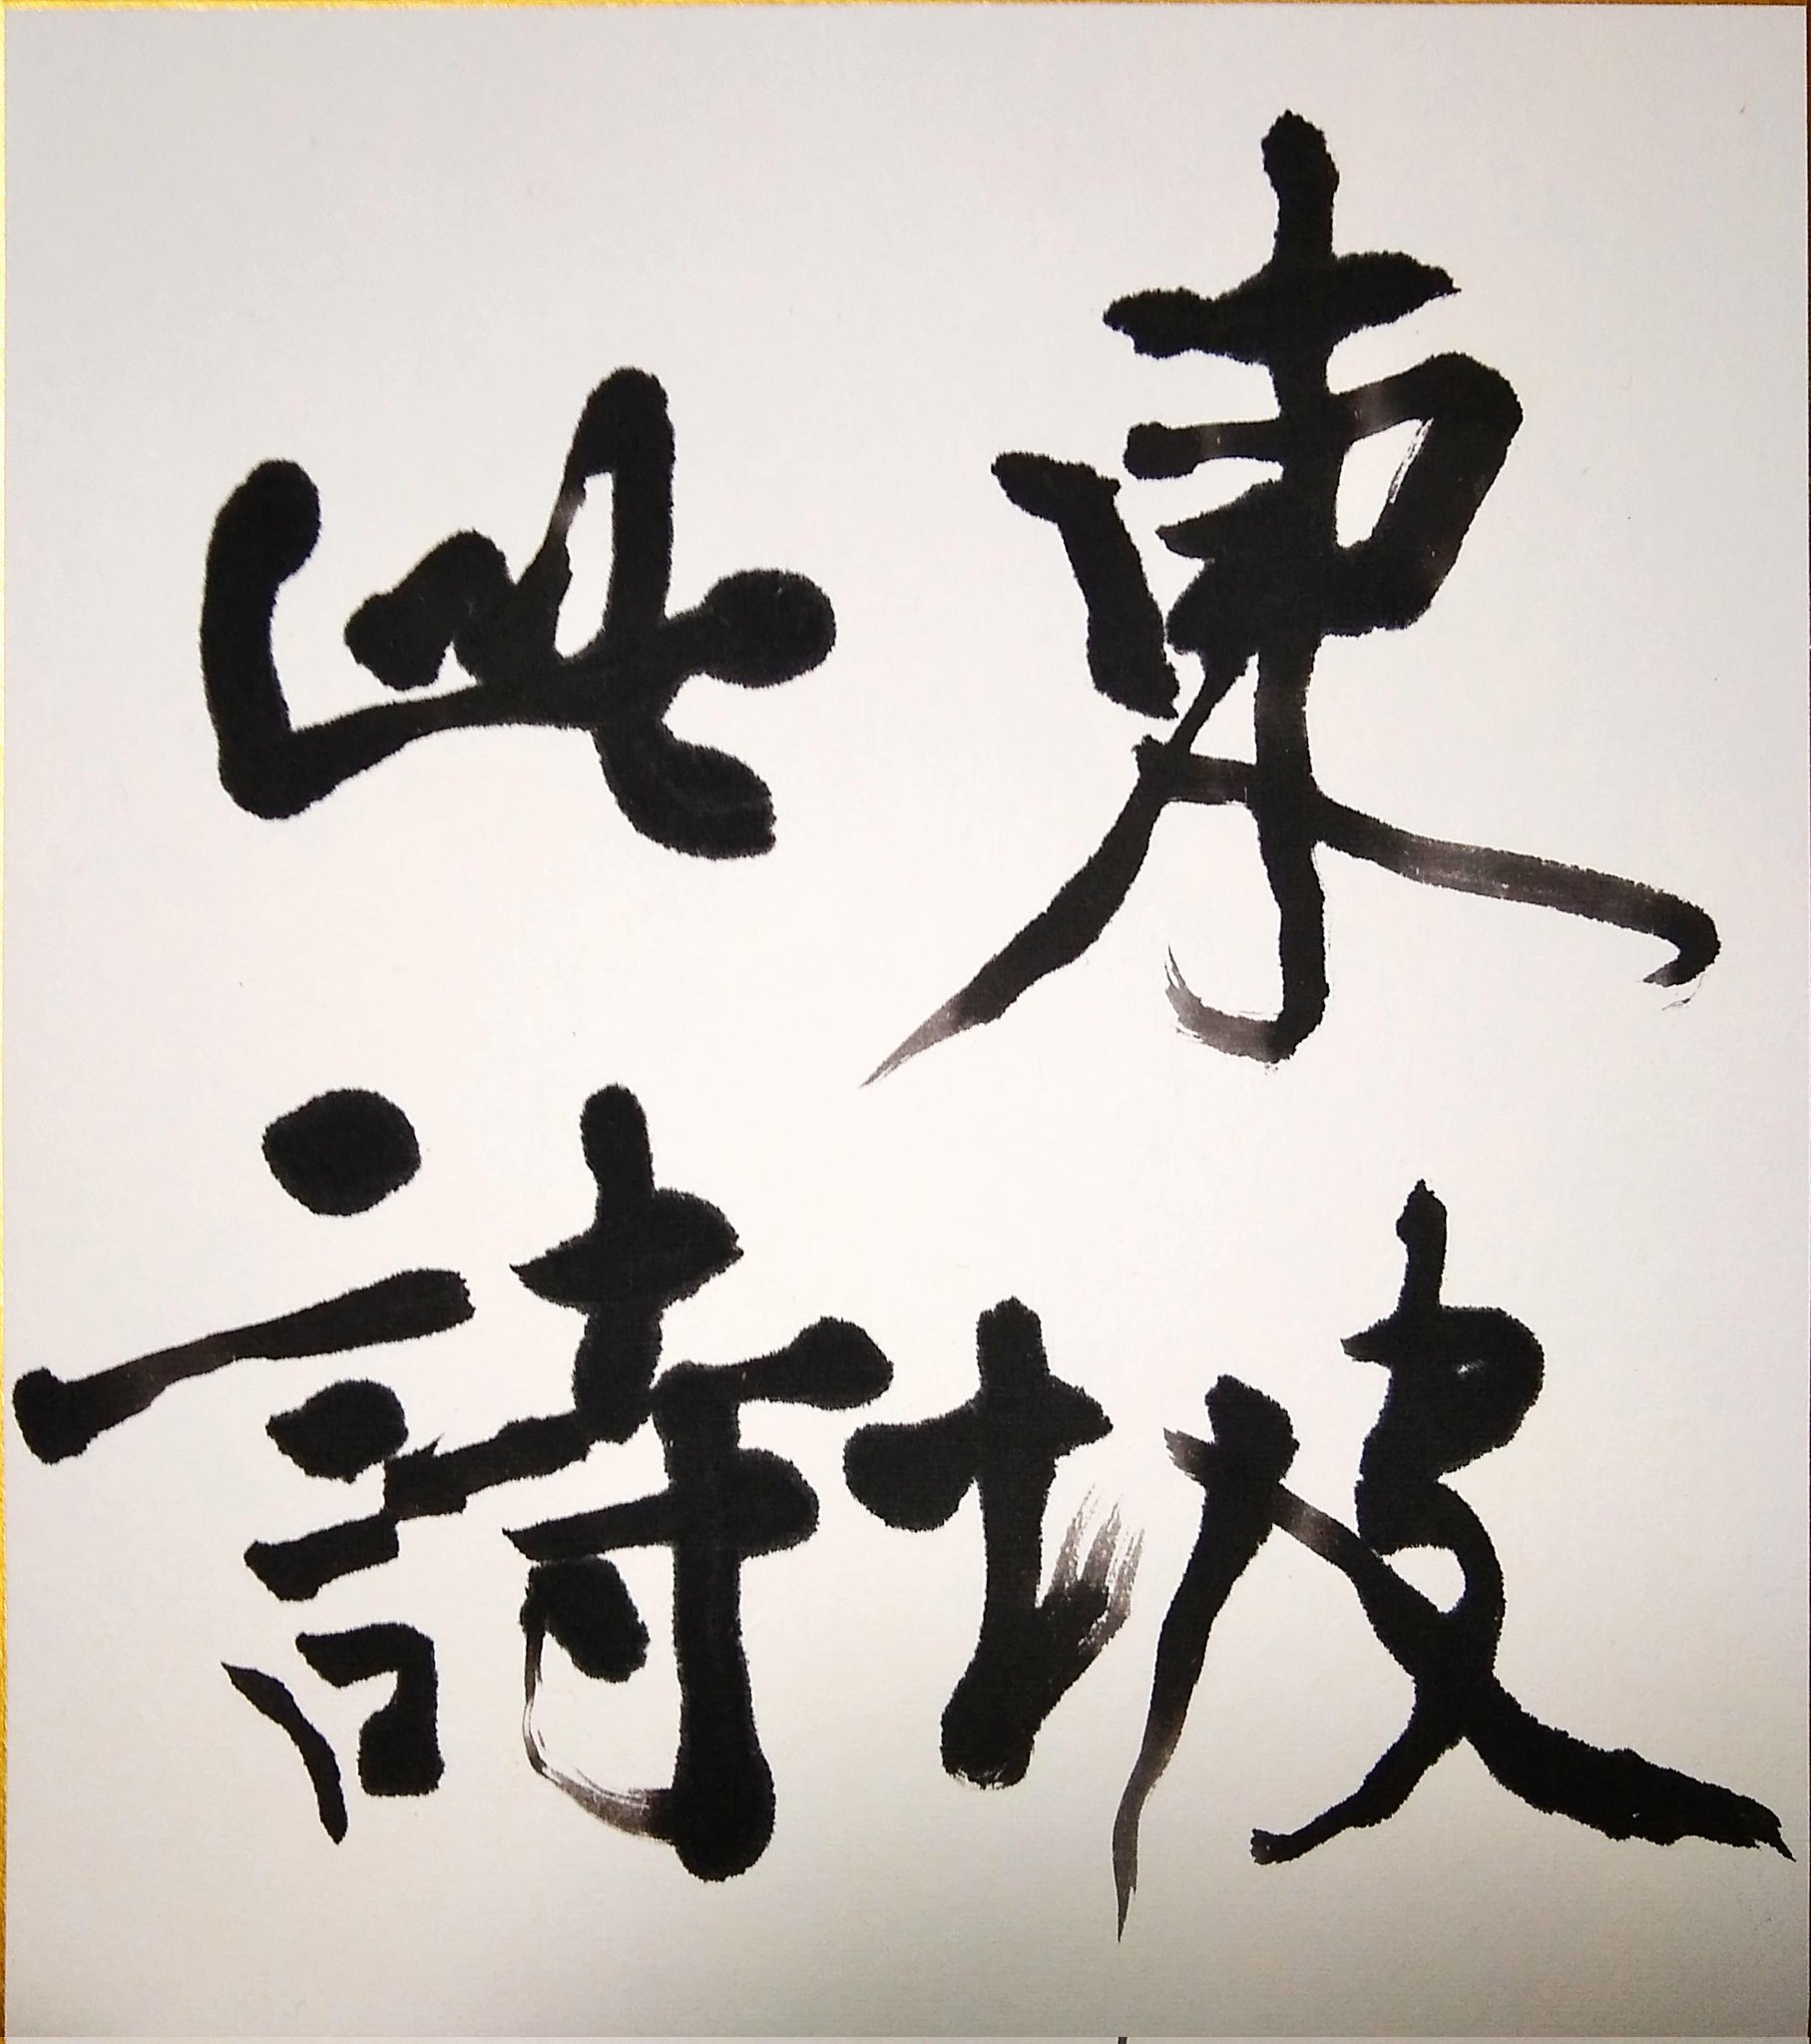 東坡
此詩